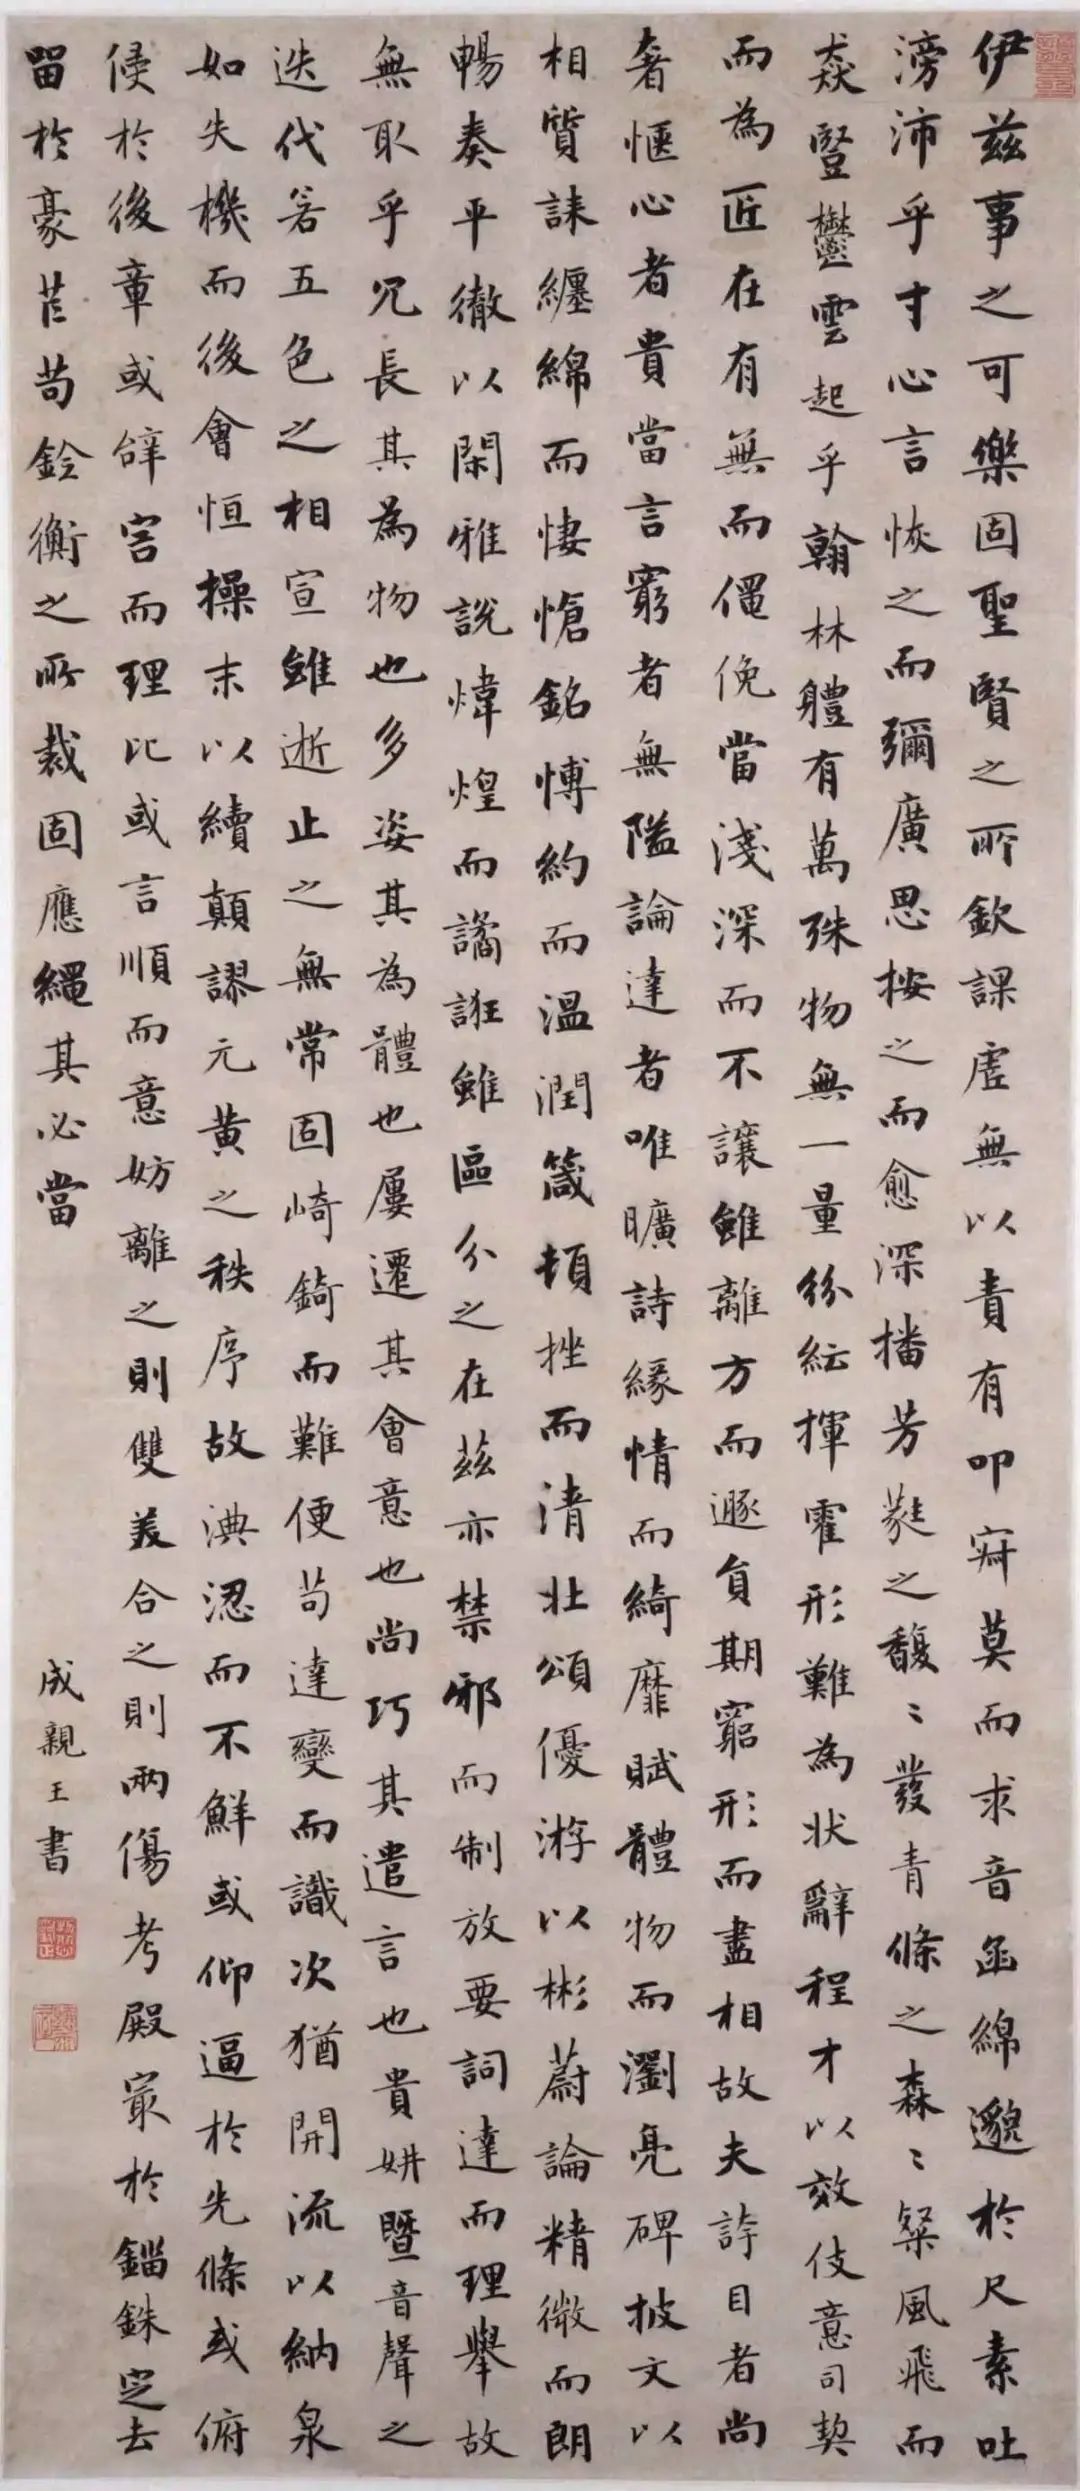 伊茲事之可樂固聖賢之所欽課虛無以責有叩寂莫而求音函綿邈於尺素吐
滂沛乎寸心言恢之而彌廣思按之而愈深播芳蕤之馥〻發青條之森〻粲風飛而
猋豎鬱雲起乎翰林體有萬殊物無一量紛紜揮霍形難為狀辭程才以效伎意司契
而為匠在有無而僶俛當淺深而不讓雖離方而遯負期窮形而盡相故夫誇目者尚
奢愜心者貴當言窮者無隘論達者唯曠詩緣情而綺靡賦體物而瀏亮碑披文以
相質誄纏綿而悽愴銘博約而溫潤箴頓挫而清壯頌優游以彬蔚論精微而朗
暢奏平徹以閑雅說煒煌而譎誑雖區分之在茲亦禁邪而制放要詞達而理舉故
無取乎冗長其為物也多姿其為體也屢遷其會意也尚巧其遣言也貴妍暨音聲之
迭代若五色之相宣雖逝止之無常固崎錡而難便苟達變而識次猶開流以納泉
如失機而後會恒操末以續顛謬元黃之秩序故淟涊而不鮮或仰逼於先條或俯
侵於後章或辭害而理比或言順而意妨離之則雙美合之則兩傷考殿最於錙銖定去
留於毫芒苟銓衡之所裁固應繩其必當
成親王書